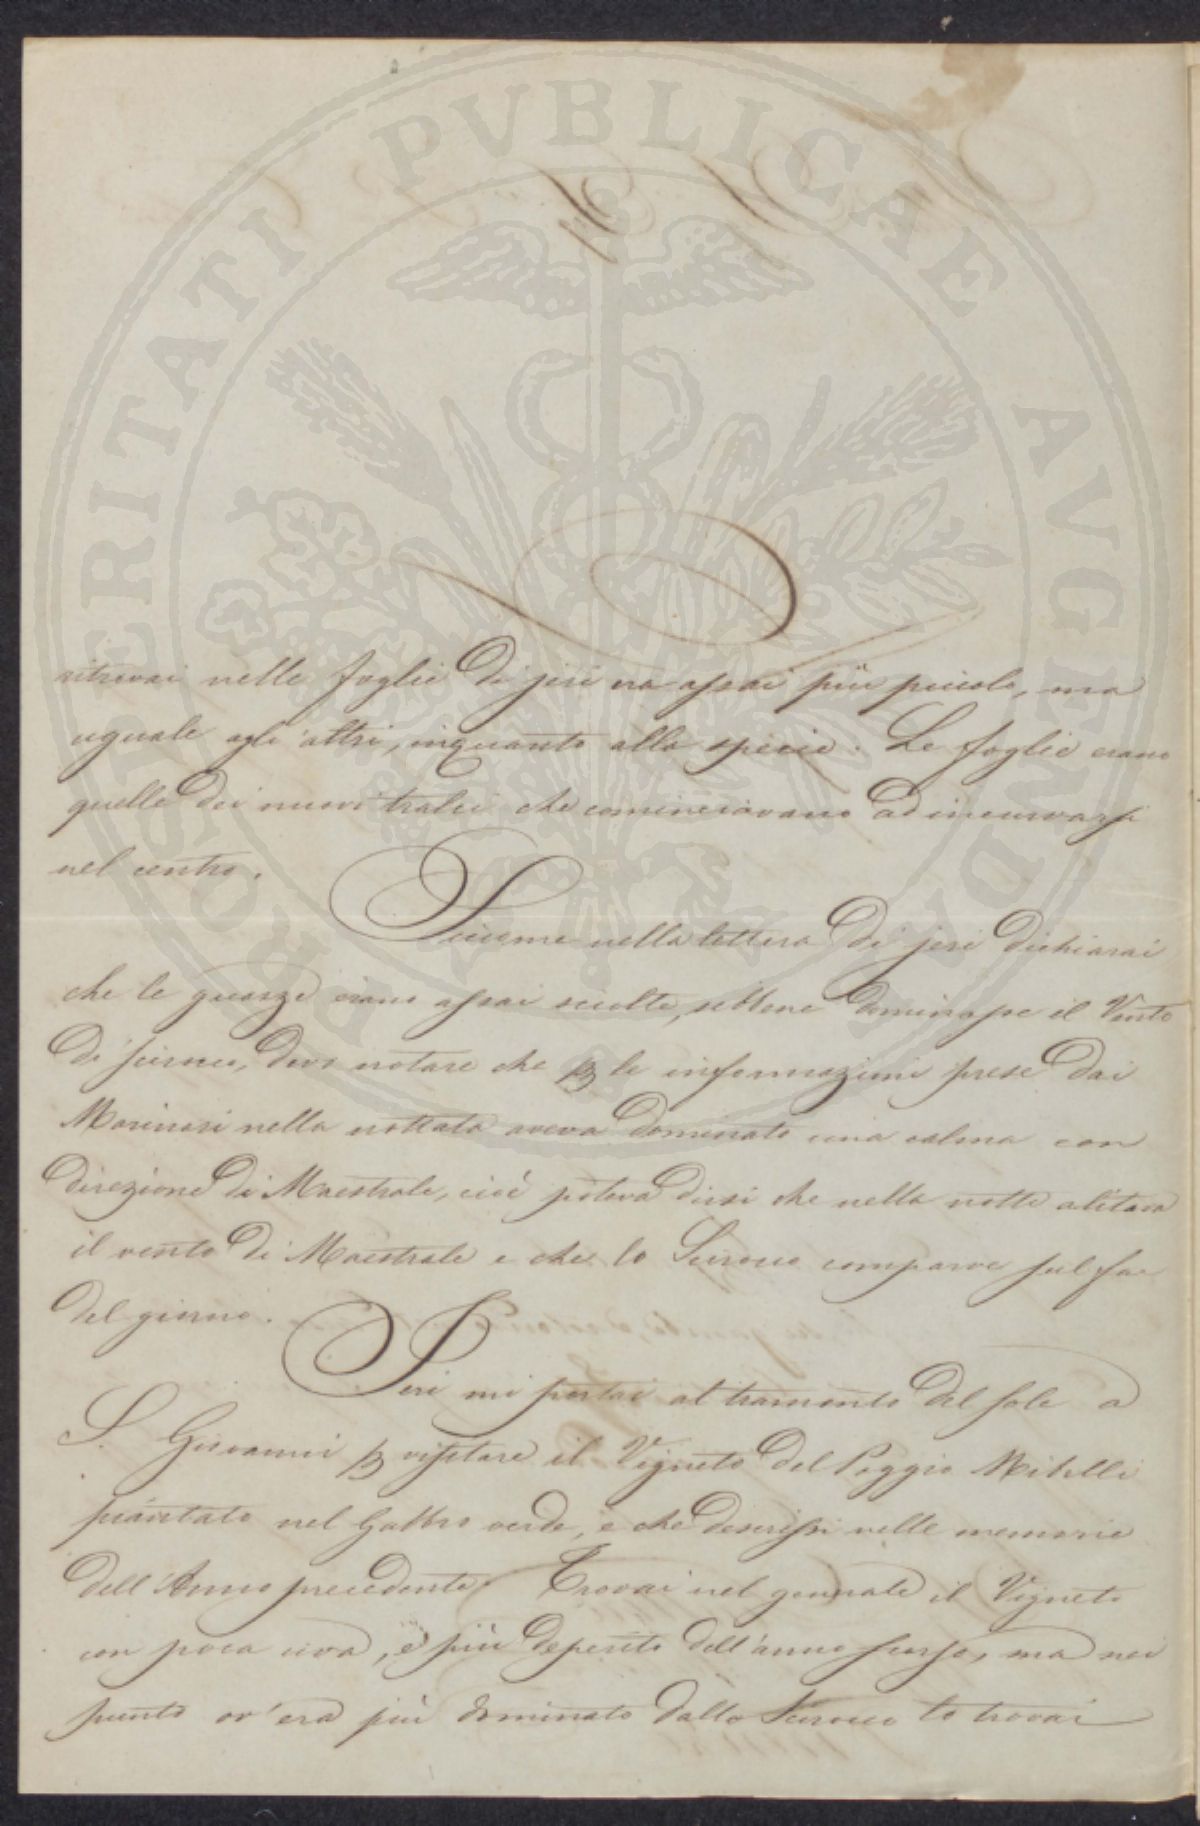 PROSPERITATI PVBLICAE AVGENDAE
ritrovai nelle foglie di jeri era assai più piccolo, ma
uguale agli altri, inquanto alla specie. Le foglie erano
quelle dei nuovi tralci che cominciavano ad incurvarsi
nel centro.
Siccome nella lettera di jeri dichiarai
che le guazze erano assai sciolte, sebbene dominasse il Vento
di scirocco, devo notare che p le informazioni prese dai
Marinari nella nottata aveva dominato una calma con
direzione di Maestrale, cioè poteva dirsi che nella notte alitava
il vento di Maestrale e che lo Scirocco comparve sul far
del giorno.
Jeri mi portai al tramonto del sole a
S. Giovanni p visitare il Vigneto del Poggio Mibelli
piantato nel Gabbro verde, e che descrissi nelle memorie
dell'Anno precedente. Trovai nel generale il Vigneto
con poca uva, e più deperito dell'anno scorso, ma nei
punto ov'era più dominato dallo Scirocco lo trovai